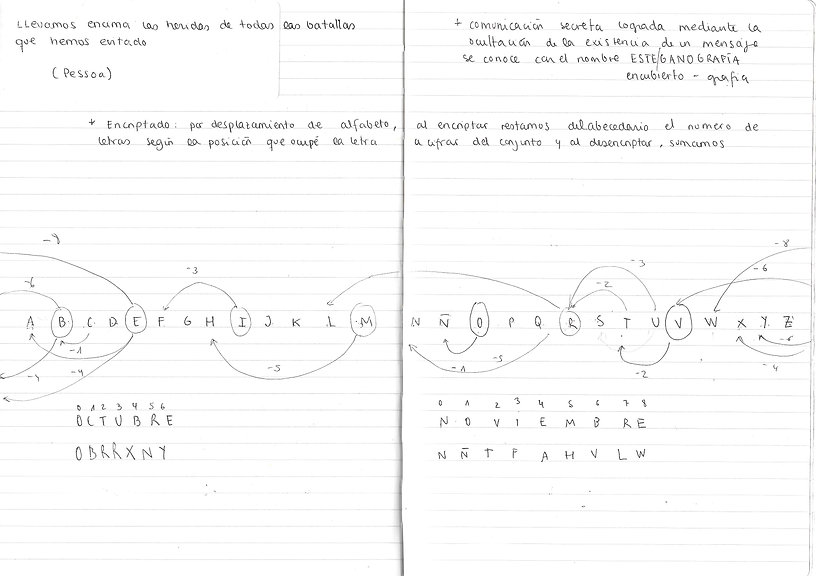 LLevamos encima las heridas de todas las batallas
que hemos entado
(Pessoa)
+ comunicación secreta lograda mediante la
ocultación de la existencia de un mensaje
se conoce con el nombre ESTE/GANOGRAFÍA
encubierto - grafia
* Encriptado: por desplazamiento de alfabeto, al encriptar restamos del abecedario el numero de
letras según la posición que ocupé la letra a cifrar del conjunto y al desencriptar, sumamos
-9
-8
-3
-3
-6
-6
-2
A B C D E F G H I J K L M N Ñ O P Q R S T U V W X Y Z
-1
-6
-4
-4
-5
-1
-5
-2
-4
0 1 2 3 4 5 6
OCTUBRE
OBRRXNY
0 1 2 3 4 5 6 7 8
N O V I E M B R E
N Ñ T F A H V L W